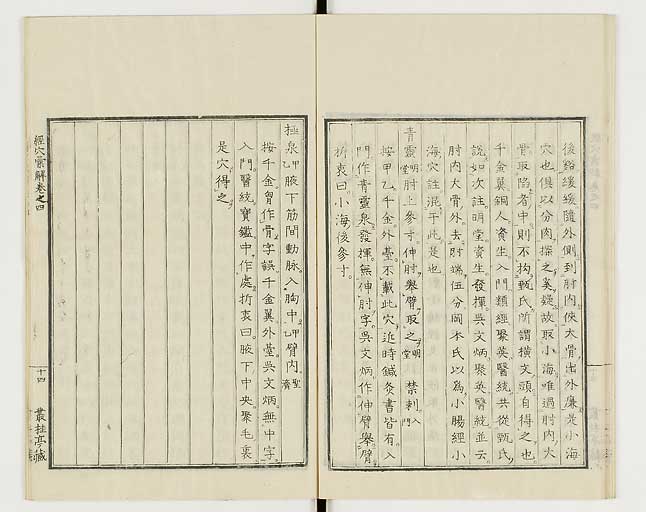 後谿緩緩隨外側到肘内俠大骨出外廉是小海
穴也俱以分肉探之奚疑故取小海唯過肘内大
骨取陷者中則不拘甄氏所謂横文頭自得之也
千金翼銅人資生入門類經聚英醫統共從甄氏
說如次註明堂資生發揮吳文炳聚英醫統並云
肘内大骨外去肘端伍分岡本氏以為小腸經小
海穴註混乎此是也
青靈明堂肘上參寸伸肘舉臂取之明堂禁刺入門
按甲乙千金外臺不載此穴近時鍼灸書皆有入
門作青靈泉發揮無伸肘字吳文炳作伸臂舉臂
折衷曰小海後參寸
極泉甲乙腋下筋間動脉入胸中甲乙臂内聖濟
按千金胷作骨字誤千金翼外臺吳文炳無中字
入門醫統寶鑑中作處折衷曰腋下中央聚毛裏
是穴得之
經穴彙解卷之四
十四
叢桂亭藏